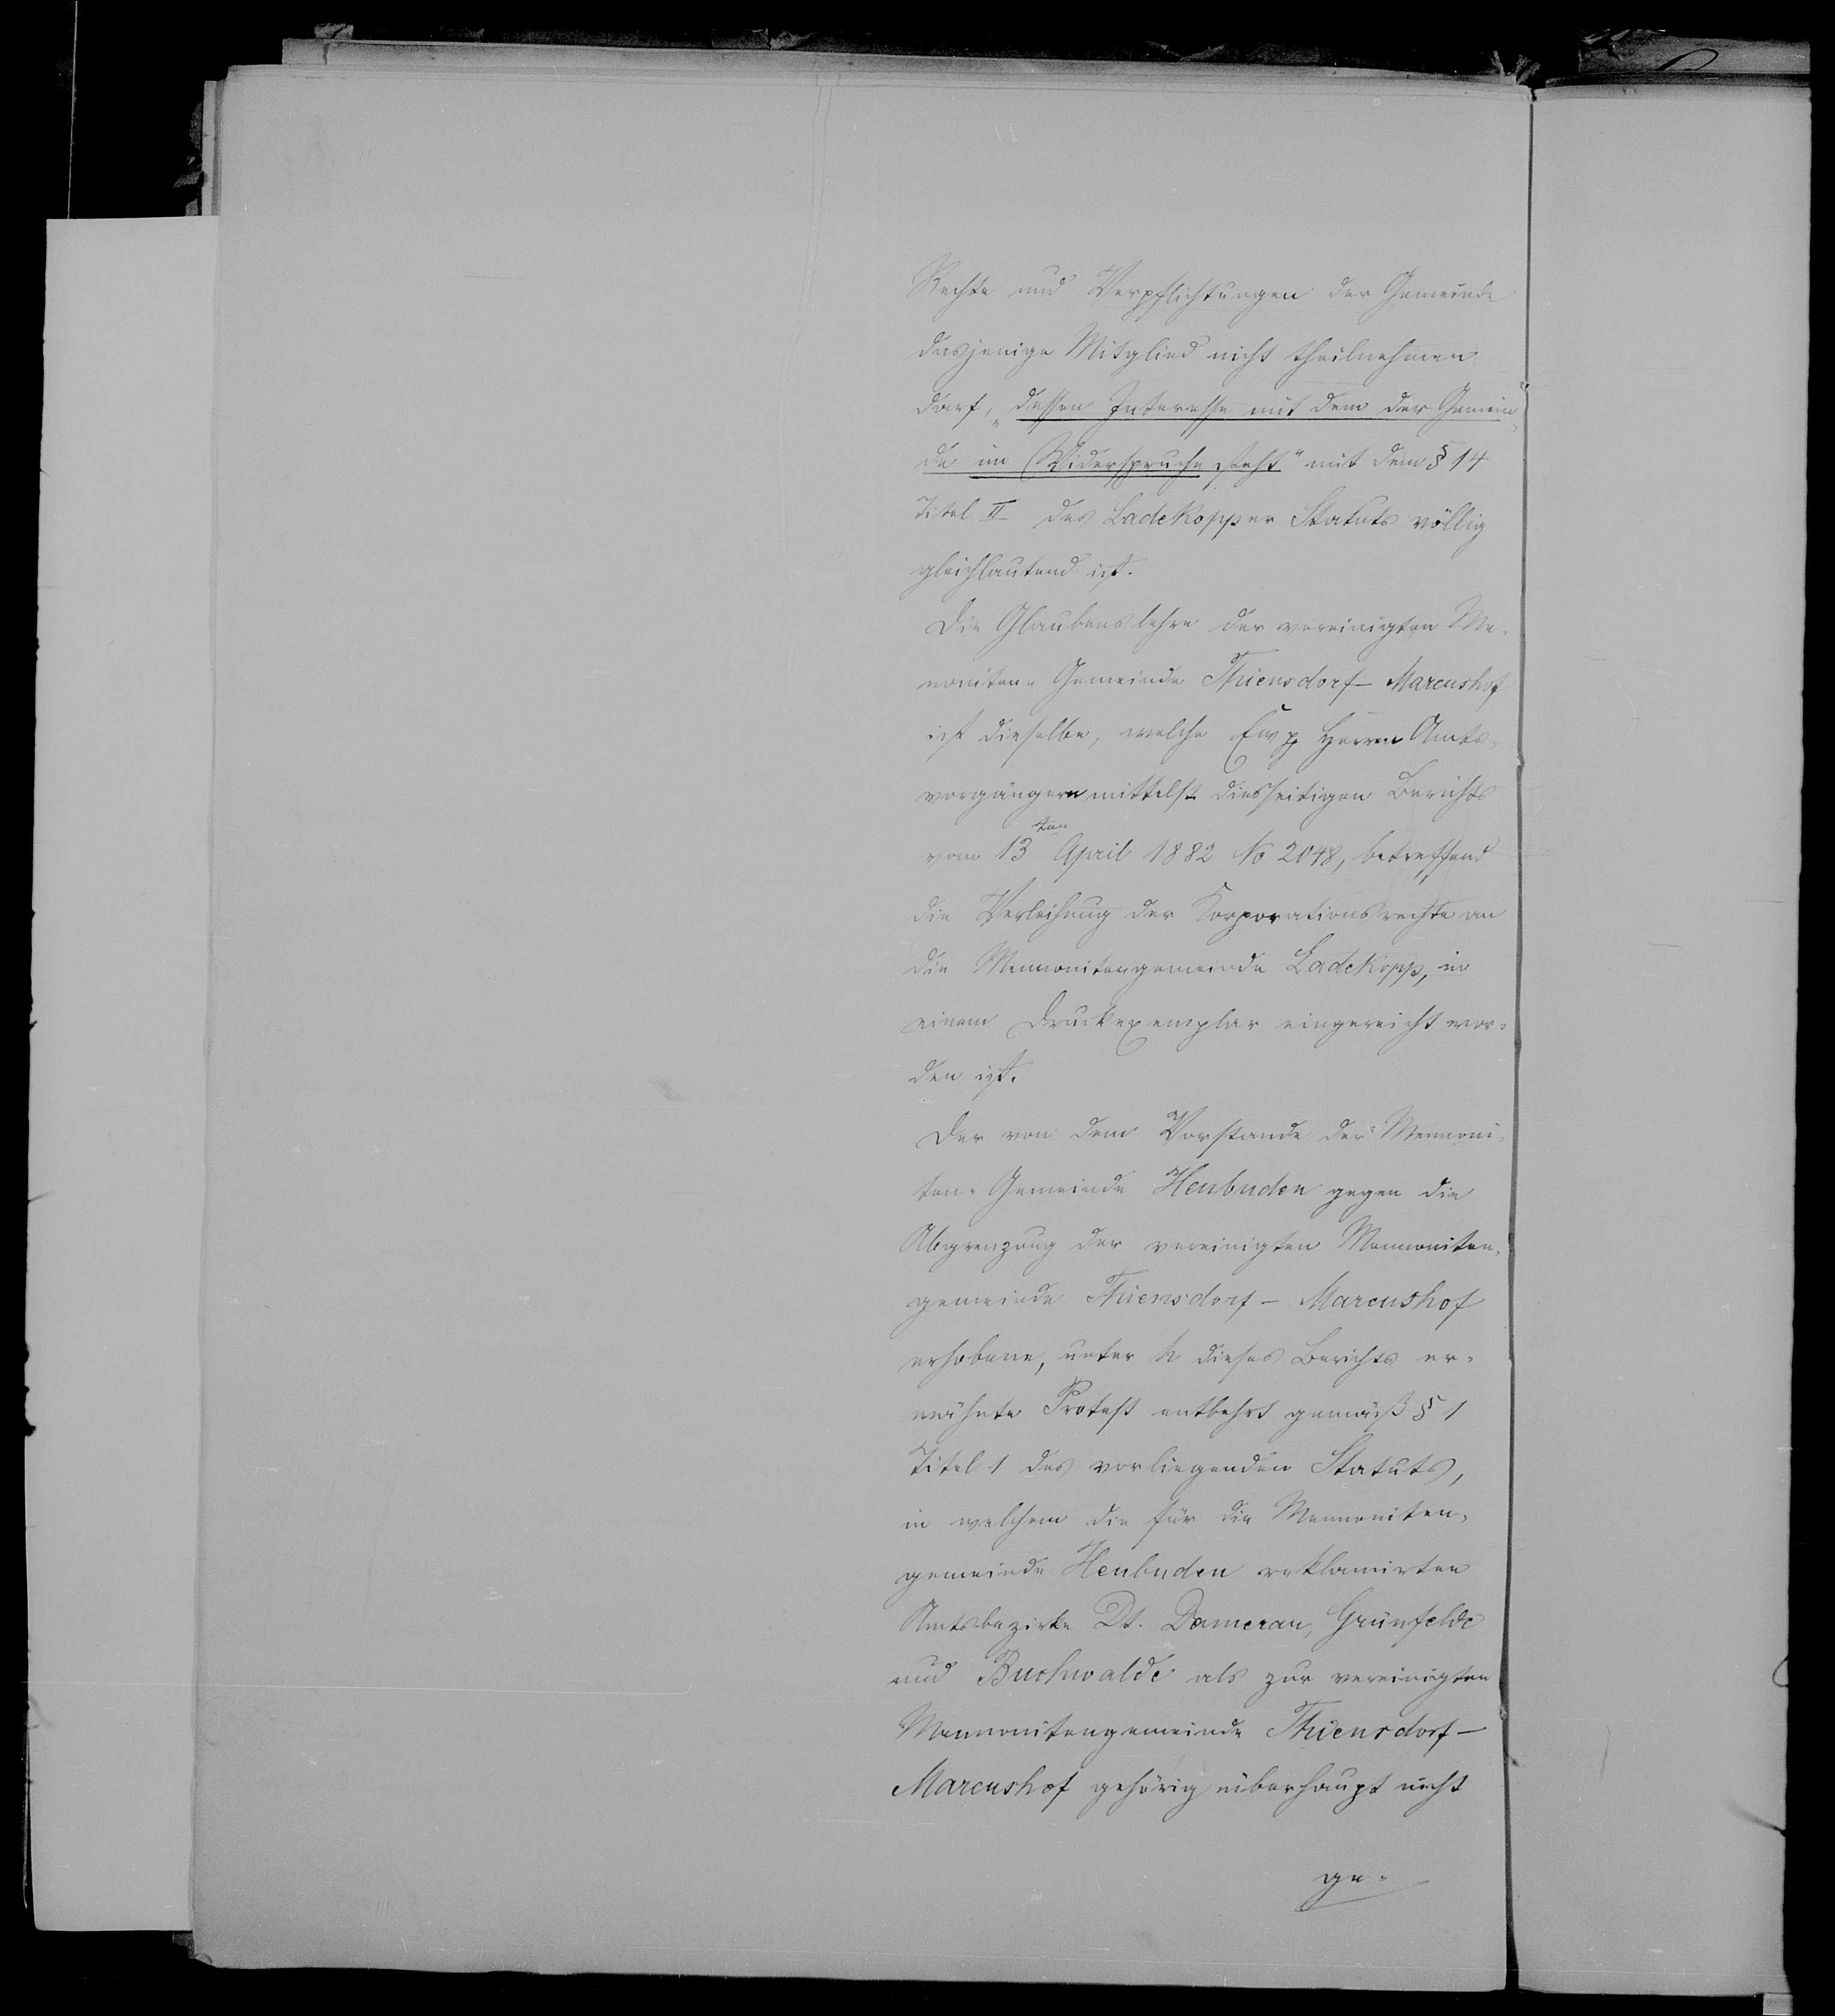 Rechte und Verpflichtungen der Gemeinde
dasjenige Mitglied nicht theilnehmen
darf, „dessen Interesse mit dem der Gemein„
de im Widerspruche steht“ mit dem § 14
Titel II des Ladekopper Statuts völlig
gleichlautend ist.
Die Glaubenslehre der vereinigten Me-
noniten-Gemeinde Thiensdorf-Marcushof
ist dieselbe, welche Ew pp Herrn Amts-
vorgängern mittelst diesseitigen Berichts
vom 13ten April 1882 No 2048, betreffend
die Verleihung der Korporationsrechte an
die Mennonitengemeinde Ladekopp, in
einem Druckexemplar eingereicht wor-
den ist.
Der von dem Vorstande der Mennoni-
ten-Gemeinde Heubuden gegen die
Abgrenzung der vereinigten Mennoniten-
gemeinde Thiensdorf - Marcushof
erhobene, unter h dieses Berichts er-
wähnte Protest entbehrt gemäß § 1
Titel 1 des vorliegenden Statuts,
in welchem die für die Mennoniten-
gemeinde Heubuden reklamirten
Amtsbezirke Dt. Damerau, Grünfelde
und Buchwalde als zur vereinigten
Mennonitengemeinde Thiensdorf-
Marcushof gehörig überhaupt nicht
ge-